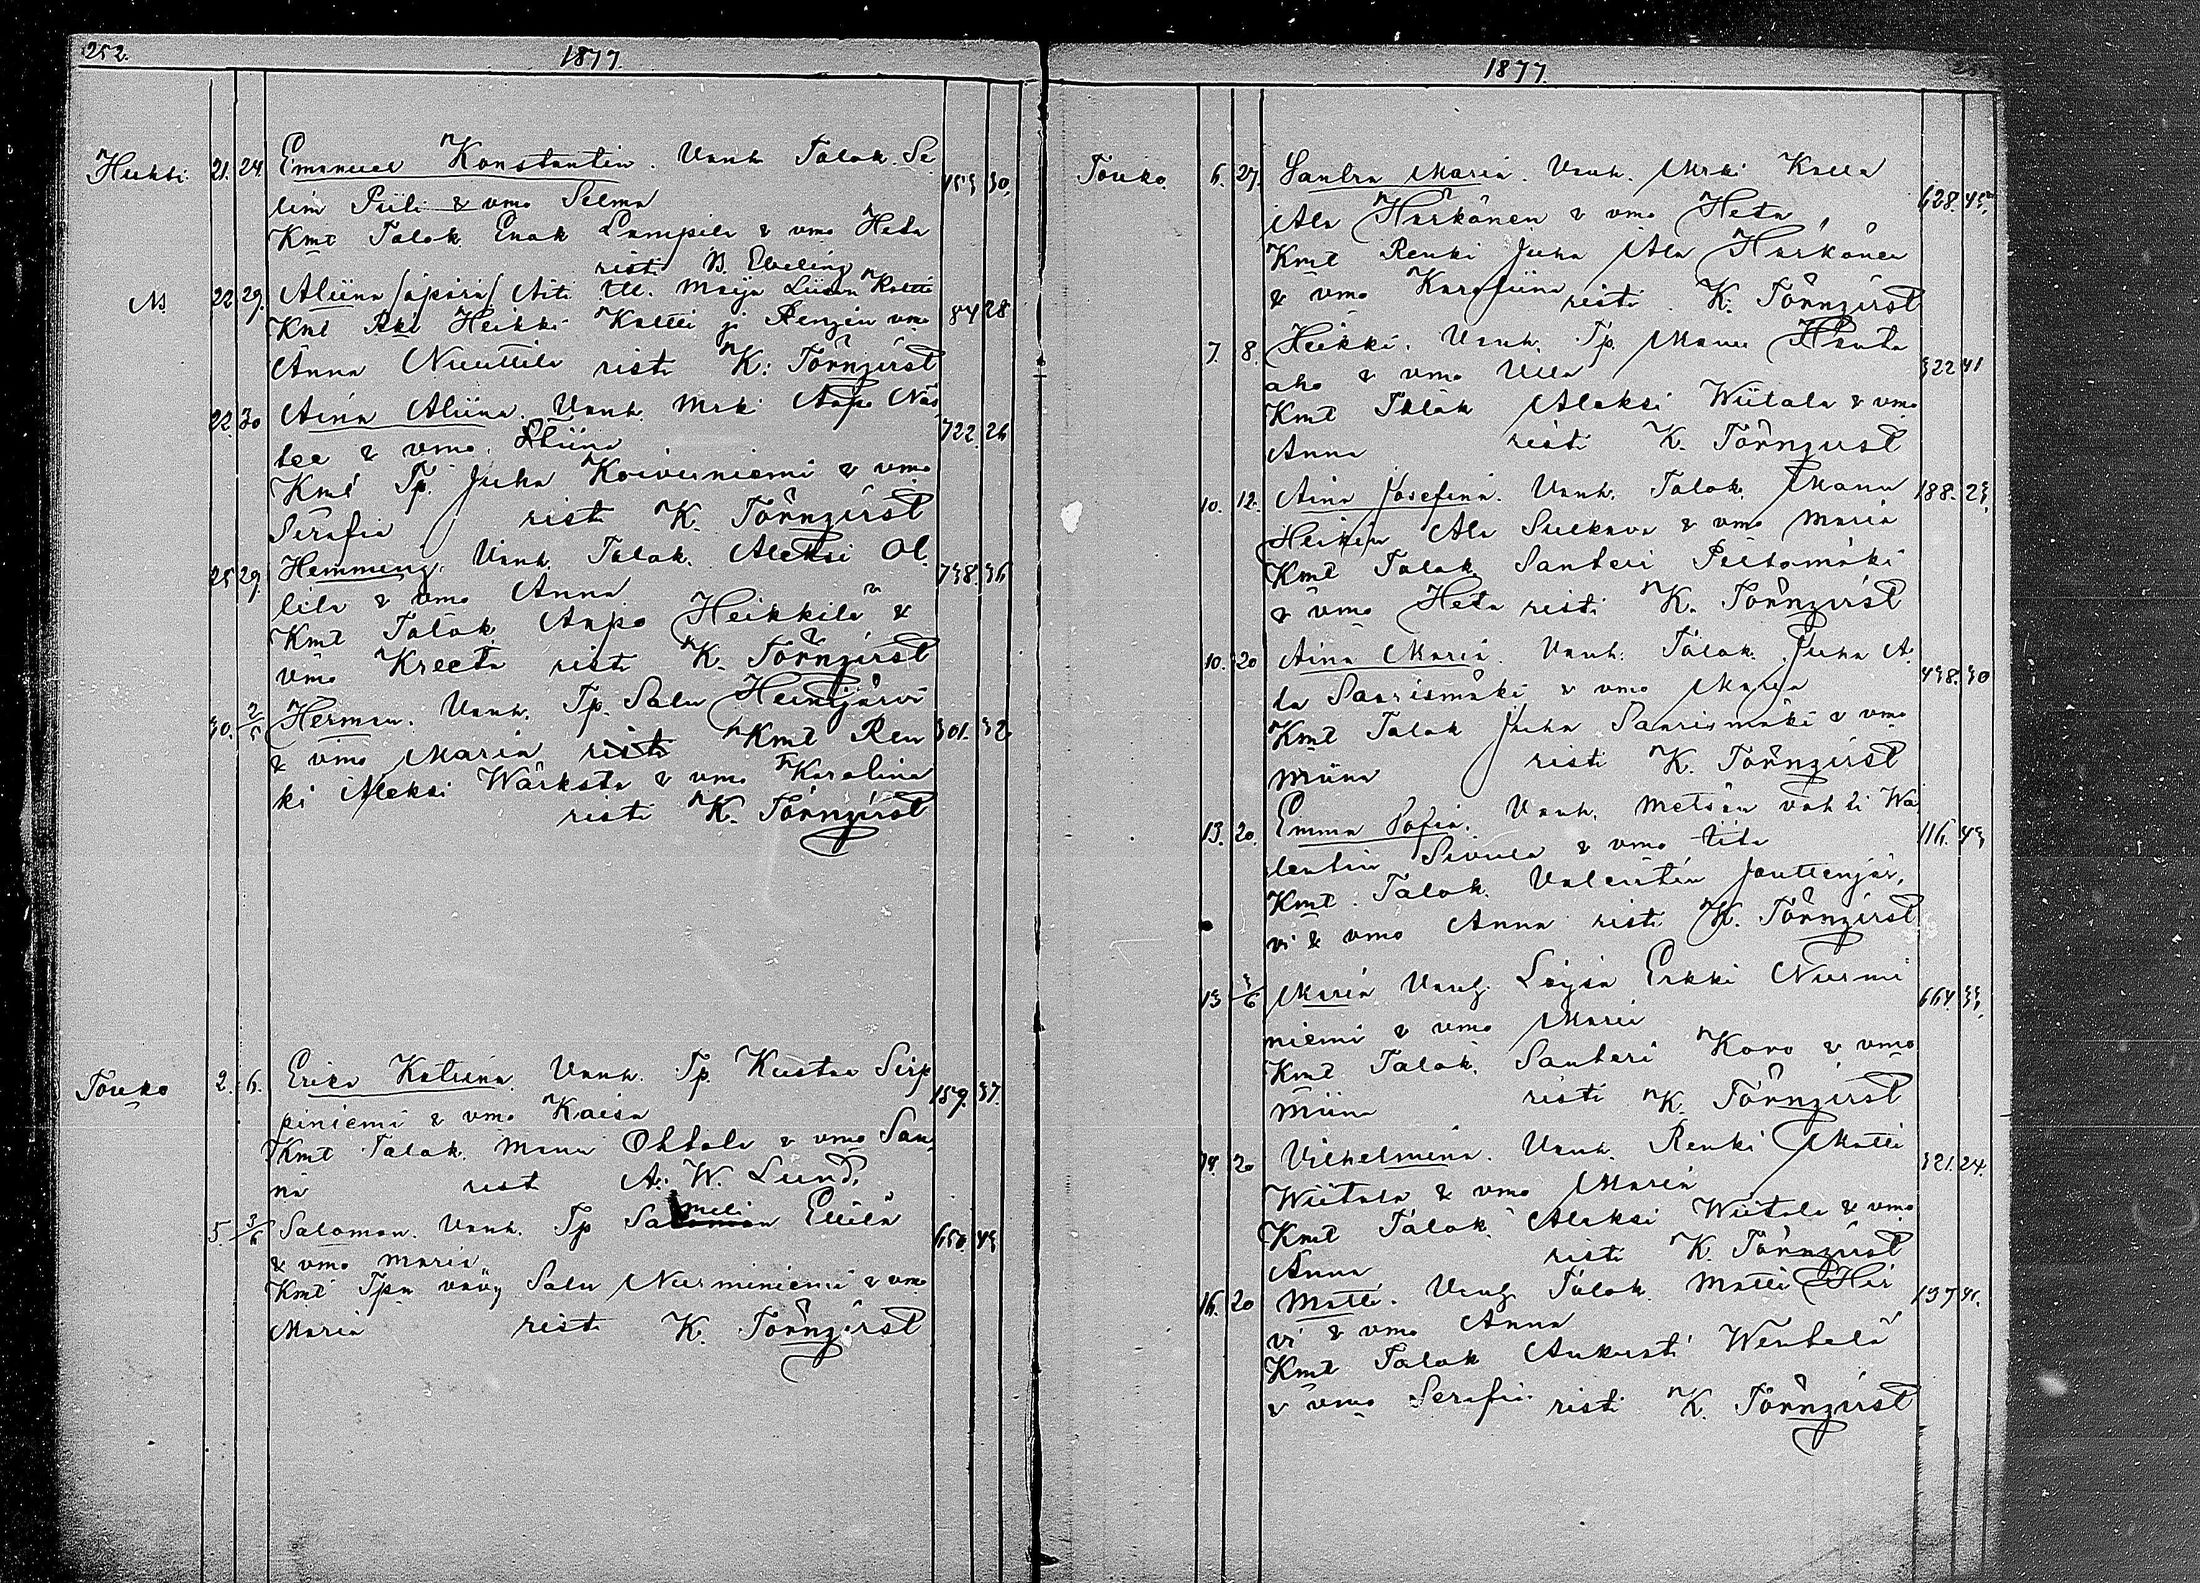 252.
1877.
Huhti. 21. 24. Emanuel Konstantin. Vanh. Talok. Se
lim Piili & vmo Selma 153 30.
Kmt Talok. Enok Lampila & vmo Heta
risti B. Ebeling
M. 22 29. Aliina /äpärä/ Äiti Itl. Maija Liisa Koltti 84 28
Kmt Rki Heikki Koltti ja Rengin vmo
Anna Niuttila risti K. Törnqvist
22. 30 Aina Aliina. Vanh. Mrki Aapo Näs
tee & vmo. Aliina 722. 26
Kmt Tp. Juha Koivuniemi & vmo
Serafia risti K. Törnqvist
25 29. Hemming. Vanh. Talok. Aleksi Ol 738. 36
lila & vmo Anna
Kmt Talok. Aapo Heikkilä &
vmo Kreeta risti K. Törnqvist
30. 2/5 Herman. Vanh. Tp. Salu Heinijärvi
& vmo Maria risti Kmt Ren 301. 32
ki Aleksi Wärksta & vmo Karolina
risti K. Törnqvist
Touko 2. 6. Erika Katriina. Vanh. Tp. Kustaa Sirp
piniemi & vmo Kaisa 159. 37.
Kmt Talok. Manu Ohtala & vmo San
na rist A. W. Lund.
5. 3/6 Salomon. Vanh. Tp Sa meli Ellilä 650. 43
& vmo Maria
Kmt Tpn vävy Salu Nurminiemi & vmo
Maria risti K. Törnqvist
1877.
Touko. 6. 27. Santra Maria. Vanh. Mrki Kalla 628. 45
Ala Härkönen & vmo Heta
Kmt Renki Juha Ala Härkönen
& vmo Karoliina risti K. Törnqvist
7. 8. Heikki. Vanh. Tp. Manu Hauta
aho & vmo Ulla 322 41
Kmt Talok Aleksi Wiitala & vmo
Anna risti K. Törnqvist
10. 12. Aina Josefina. Vanh. Talok. Manu 188. 23
Heikin Ala Sulkava & vmo Maria
Kmt Talok. Santeri Peltomäki
& vmo Heta risti K. Törnqvist
10. 20 Aina Maria. Vanh. Talok. Juha A
la Saarismäki & vmo Maija 438. 30
Kmt Talok Juha Saarismäki & vmo
Miina risti K. Törnqvist
13. 20. Emma Sofia. Vanh. Metsän vahti Wa 116. 43
lentin Sivula & vmo Tiita
Kmt. Talok. Valentin Jouttenjär,
vi & vmo Anna risti K. Törnqvist
13 3/6 Maria Vanh. Loysä Erkki Nurmi 664. 33
niemi & vmo Maria
Kmt Talok. Santeri Koro & vmo
Miina risti K. Törnqvist
14. 20 Vilhelmina. Vanh. Renki Matti 321. 24.
Wiitala & vmo Maria
Kmt Talok. Aleksi Wiitala & vmo
Anna risti K. Törnqvist
16. 20 Matti. Vanh Talok. Matti Hir 197 41.
vi & vmo Anna
Kmt Talok Aukusti Wentelä
& vmo Serafia risti K. Törnqvist